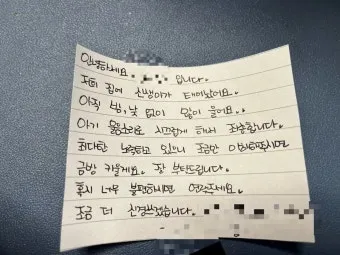 안녕하세요. 입니다.
저희 집에 신생아가 태어났어요.
아직 밤,낮 없이 많이 울어요..
아기 울음소리로 시끄럽게 해서 죄송합니다.
최대한 노력하고 있으니 조금만 이해해주시면
금방 키울게요. 잘 부탁드립니다.
혹시 너무 불편하시면 연락주세요.
조금 더 신경쓰겠습니다.